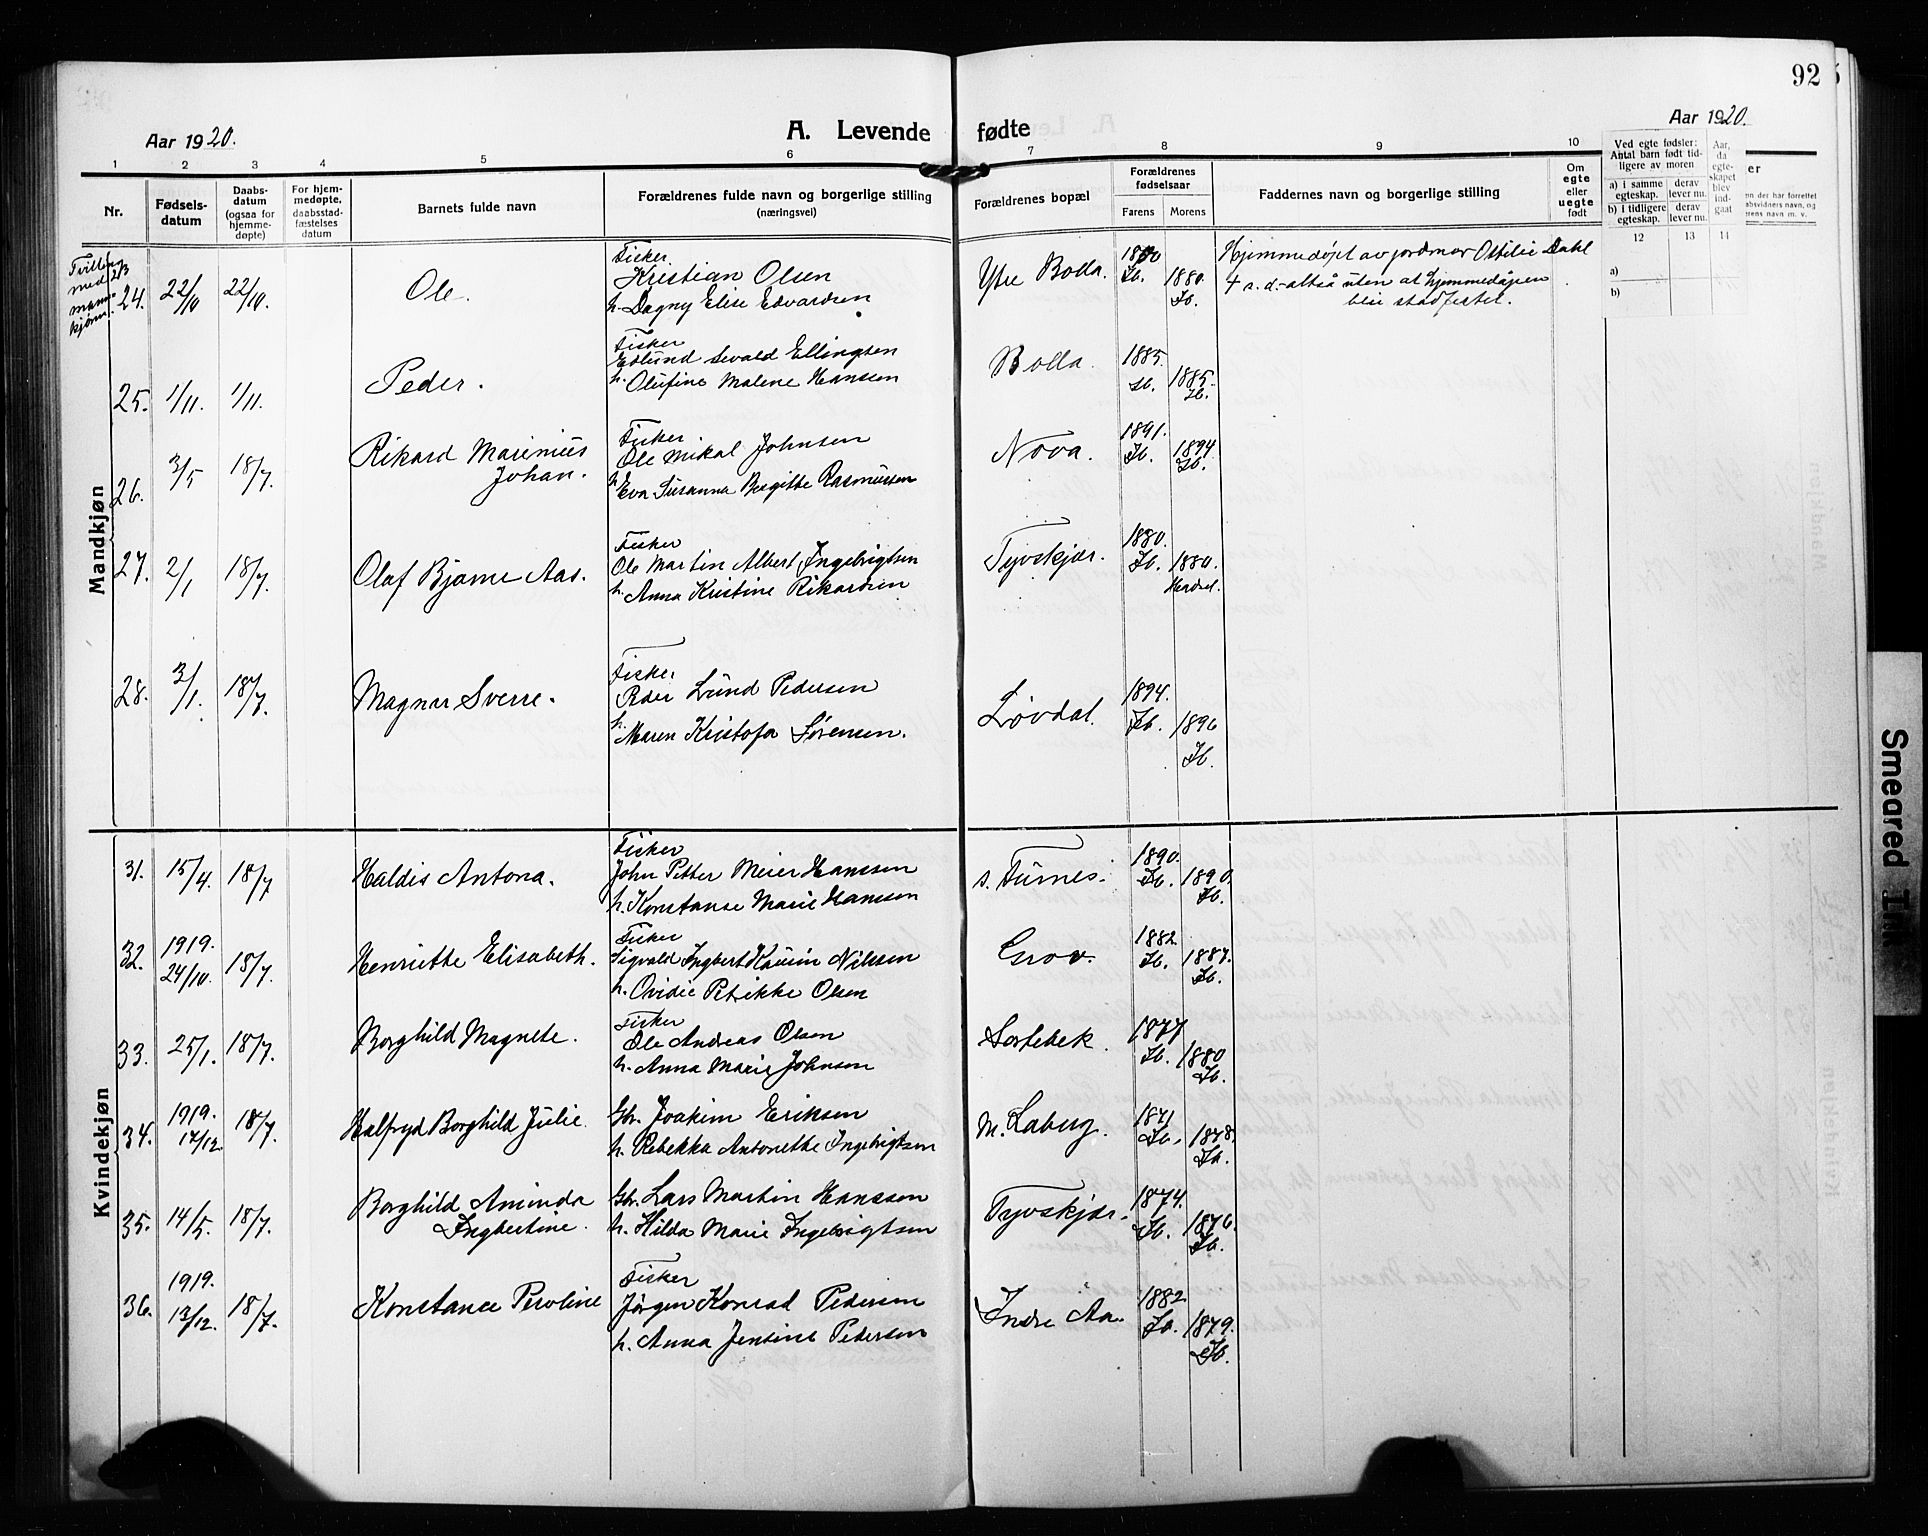 92
Aar 1920.
A. Levende fødte
Aar 1920.
1 2 3 4 5 6 7 8 9 10
Nr.
Fødsels-
datum
Daabs-
datum
(ogsaa for
hjemme-
døpte)
For hjem-
medøpte,
daabsstad-
fæstelses
datum
Barnets fulde navn
Forældrenes fulde navn og borgerlige stilling
(næringsvei)
Forældrenes bopæl
Forældrenes
fødselsaar
Farens Morens
Faddernes navn og borgerlige stilling
Om
egte
eller
uegte
født
Ved egte fødsler:
Antal barn født tid-
ligere av moren
a) i samme
egteskap.
derav
lever nu.
b) i tidligere
egteskap.
derav
lever nu.
Aar,
da
egte-
skapet
blev
ind-
gaat
12 13 14
a)
b)
Mandkjøn
Tvilling
med
24. 22/10 22/10. Ole.
Fisker
Kristian Olsen
h. Dagny Elise Edvardsen
Ytre Bolla. Ib. 1880. Ib.
Hjemmedøpt av jordmor Ottilie Dahl
† s. d. - altså uten at hjemmedåpen
blei stadfestet.
25. 1/11. 1/11. Peder.
Fisker
Edlund Sevald Ellingsen
h. Olufine Malene Hansen
Bolla. 1885. Ib. 1885. Ib.
26. 3/5 18/7. Rikard Marinius
Johan.
Fisker
Ole Mikal Johnsen
h. Eva Susanna Bergitte Rasmussen
Nova. 1891. Ib. 1894 Ib.
27. 2/1 18/7. Olaf Bjarne Aas.
Fisker
Ole Martin Albert Ingebrigtsen
h. Anna Kristine Rikardsen
Tyvskjær. 1880. Ib. 1880. Hadsel.
28. 3/1. 18/7. Magnar Sverre.
Fisker
Peder Lund Pedersen
h. Maren Kristofa Sørensen.
Løvdal. 1894. Ib. 1896 Ib.
Kvindekjøn
31. 15/4. 18/7 Haldis Antona.
Fisker
John Petter Meier Hanssen
h. Konstanse Marie Hansson
s. Furnes. 1890. Ib. 1890. Ib.
32. 1919. 24/10. 18/7. Henriette Elisabeth.
Fisker
Sigvald Ingbert Kaurin Nilssen
h. Ovidie Petrikke Olsen
Grov. 1882. Ib. 1887. Ib.
33. 25/1. 18/7. Borghild Magnete.
Fisker
Ole Andreas Olsen
h. Anna Marie Johnsen
Sortebek. 1877 Ib. 1880 Ib.
34. 1919. 17/12. 18/7. Halfryd Borghild Julie.
Gbr. Joakim Eriksen
h. Rebekka Antonette Ingebrigtsen
M. Laberg. 1871 Ib. 1878. Ib.
35. 14/5. 18/7. Borghild Aminda
Ingbertine.
Gbr. Lars Martin Hanssen
h. Hilda Marie Ingebrigtsen
Tyvskjær. 1874. Ib. 1876. Ib.
36. 1919. 13/12. 18/7. Konstance Peroline
Fisker
Jørgen Konrad Pedersen
h. Anna Jensine Pedersen
Indre Aa. 1882 Ib. 1879. Ib.
Smeared Ink